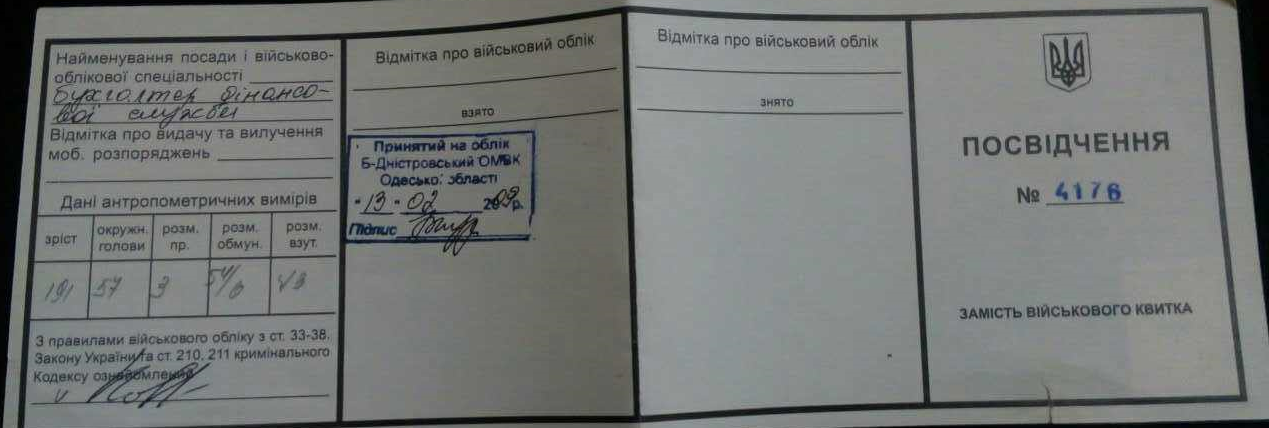 Найменування посади і військово-
облікової спеціальності
бухгалтер фінансо-
вої служби
Відмітка про видачу та вилучення
моб. розпоряджень
Дані антропометричних вимірів
зріст окружн. голови розм. пр. розм. обмун. розм. взут.
191 57 3 54/6 43
З правилами військового обліку з ст. 33-38.
Закону України та ст. 210, 211 кримінального
Кодексу ознайомлений
Відмітка про військовий облік
взято
Принятий на облік
Б-Дністровський ОМВК
Одеської області
"13" 02 2009р.
Підпис
Відмітка про військовий облік
знято
ПОСВІДЧЕННЯ
№ 4176
ЗАМІСТЬ ВІЙСЬКОВОГО КВИТКА